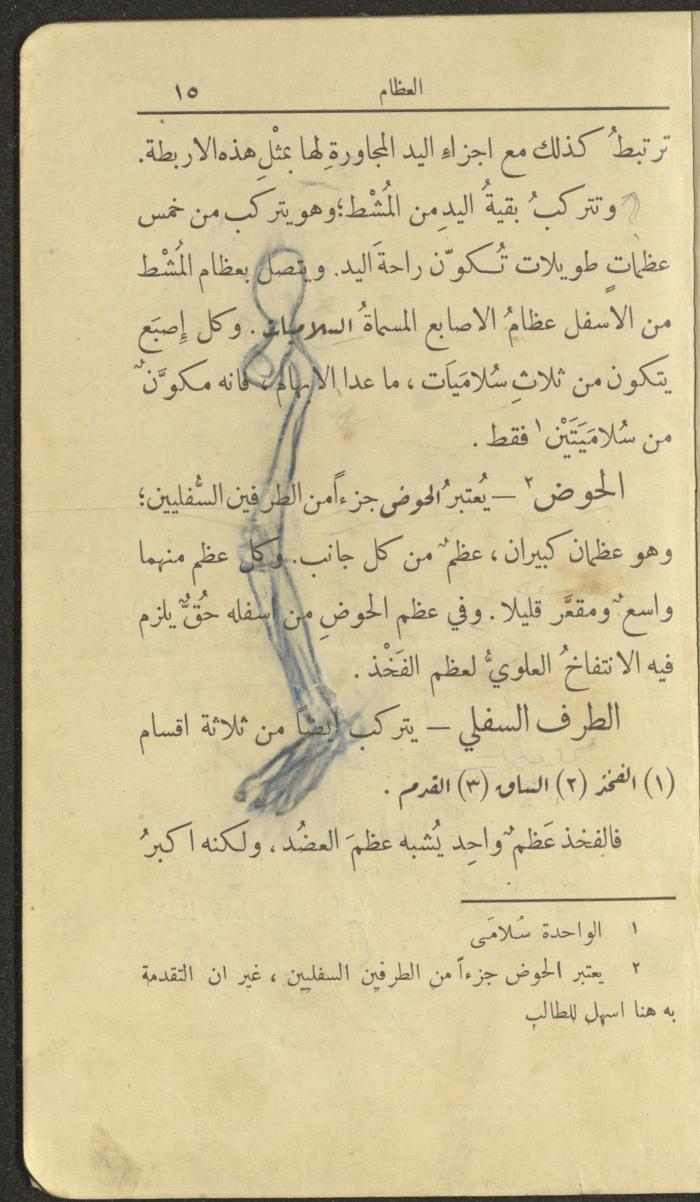 العظام ١٥
ترتبطُ كذلك مع اجزاءِ اليد المجاورةِ لها بمثْلِ هذه الاربطة.
وتتركبُ بقيةُ اليدِ من المُشْط؛ وهو يتركب من خمس
عظماتٍ طويلات تُكوّن راحةَ اليد. ويتصل بعظام المُشْط
من الاسفل عظامُ الاصابع المسماةُ السلاميات. وكل إِصبَع
يتكون من ثلاثِ سُلامَيَات، ما عدا الابهام، فانه مكوَّنٌ
من سُلامَيَتَيْن١ فقط.
الحوض٢ — يُعتبرُ الحوض جزءاً من الطرفين السُّفليين؛
وهو عظمان كبيران، عظمٌ من كل جانب. وكل عظم منهما
واسعٌ ومقعَّر قليلا. وفي عظم الحوضِ من اسفله حُقٌّ يلزم
فيه الانتفاخُ العلويُّ لعظم الفَخْذ.
الطرف السفلي — يتركب ايضاً من ثلاثة اقسام
(١) الفخذ (٢) الساق (٣) القدم.
فالفخذ عَظمٌ واحِد يُشبه عظمَ العضُد، ولكنه اكبرُ
١ الواحدة سُلامَى
٢ يعتبر الحوض جزءاً من الطرفين السفليين، غير ان التقدمة
به هنا اسهل للطالب